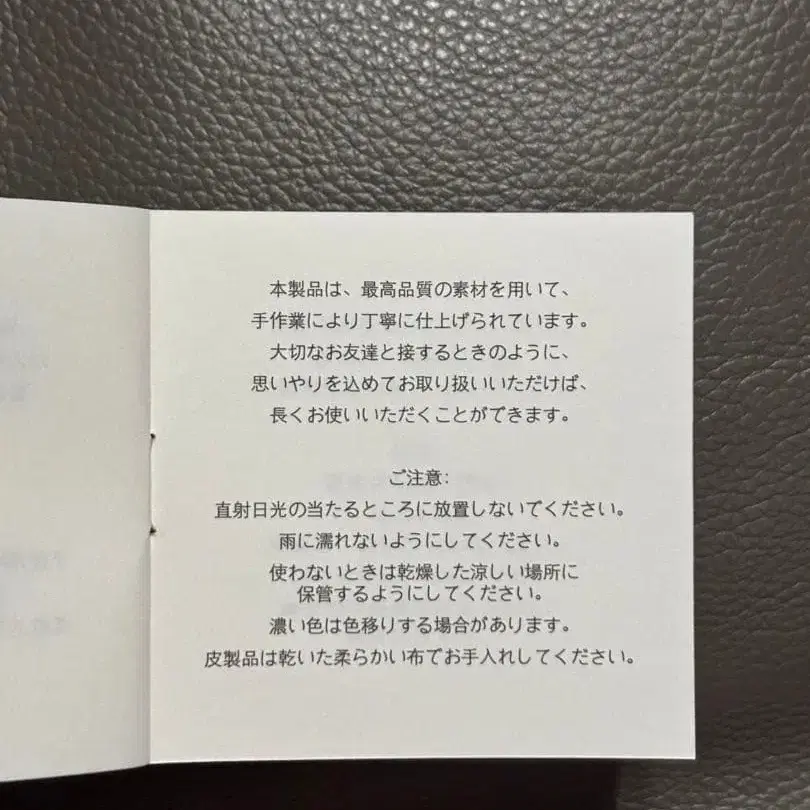 本製品は、最高品質の素材を用いて、
手作業により丁寧に仕上げられています。
大切なお友達と接するときのように、
思いやりを込めてお取り扱いいただけば、
長くお使いいただくことができます。
ご注意:
直射日光の当たるところに放置しないでください。
雨に濡れないようにしてください。
使わないときは乾燥した涼しい場所に
保管するようにしてください。
濃い色は色移りする場合があります。
皮製品は乾いた柔らかい布でお手入れしてください。